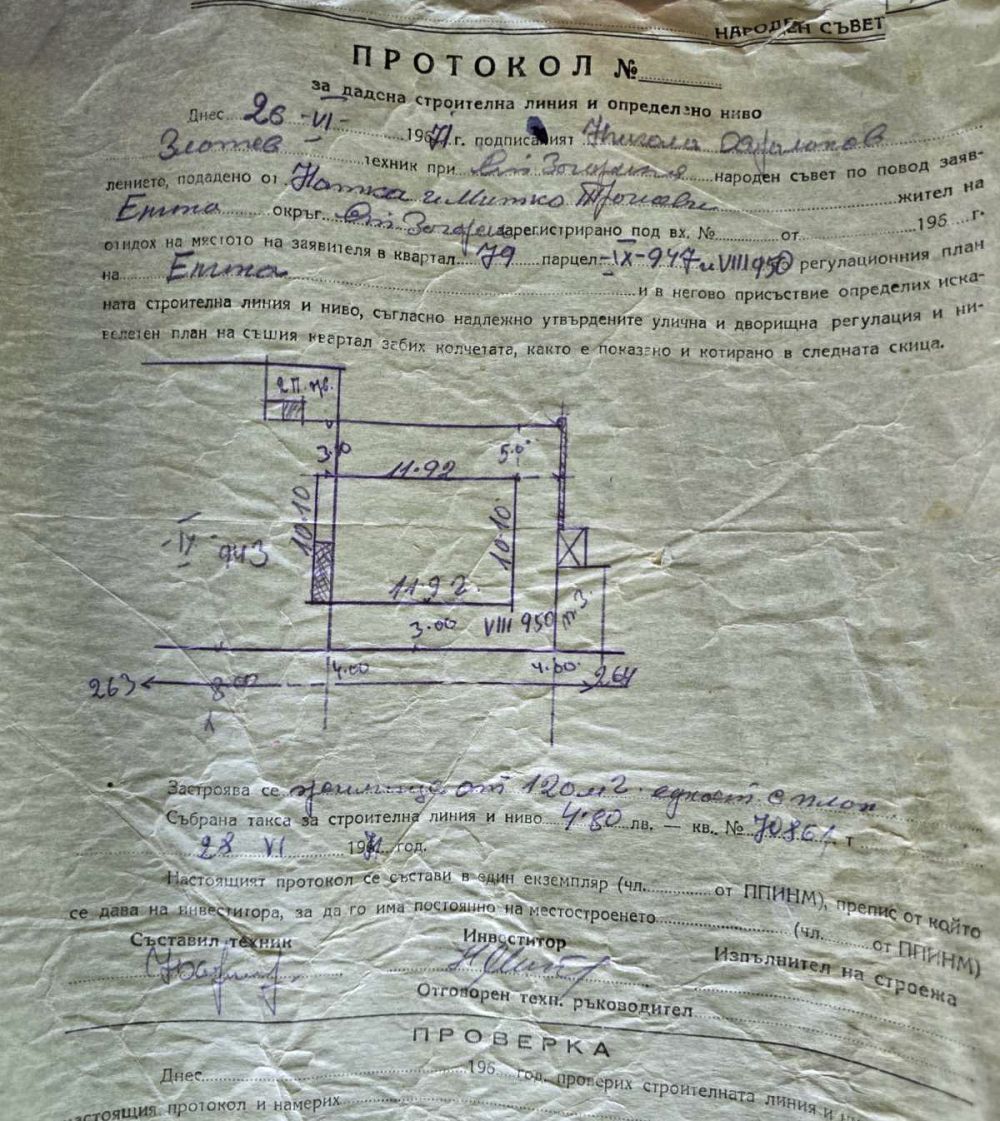 НАРОДЕН СЪВЕТ
ПРОТОКОЛ №
за дадена строителна линия и определено ниво
Днес 26 -VI- 1971 г. подписаният Никола
Златев техник при Ст. Загорския народен съвет по повод заяв-
лението, подадено от Натка и Митко жител на
Етта окръг Ст. Загора зарегистрирано под вх. № от 196 г.
отидох на мястото на заявителя в квартал 79 парцел -IX-947 и VIII 950 регулационния план
на Етта и в негово присъствие определих иска-
ната строителна линия и ниво, съгласно надлежно утвърдените улична и дворищна регулация и ни-
велетен план на същия квартал забих колчетата, както е показано и котирано в следната скица.
2 П.
3.00
11.92
5.0
10.10
10.10
-IX- 943
11.92
3.00
VIII 950
т.З.
4.00
4.00
263
8.00
264
Застроява се жилище от 120 м2. едноет. с плоч
Събрана такса за строителна линия и ниво 4.80 лв. — кв. № 70861 т
28 VI 1971 год.
Настоящият протокол се състави в един екземпляр (чл. от ППИНМ), препис от който
се дава на инвеститора, за да го има постоянно на местостроенето (чл. от ППИНМ)
Съставил техник
Инвеститор
Изпълнител на строежа
Отговорен техн. ръководител
ПРОВЕРКА
Днес 196 год. проверих строителната линия и
настоящия протокол и намерих